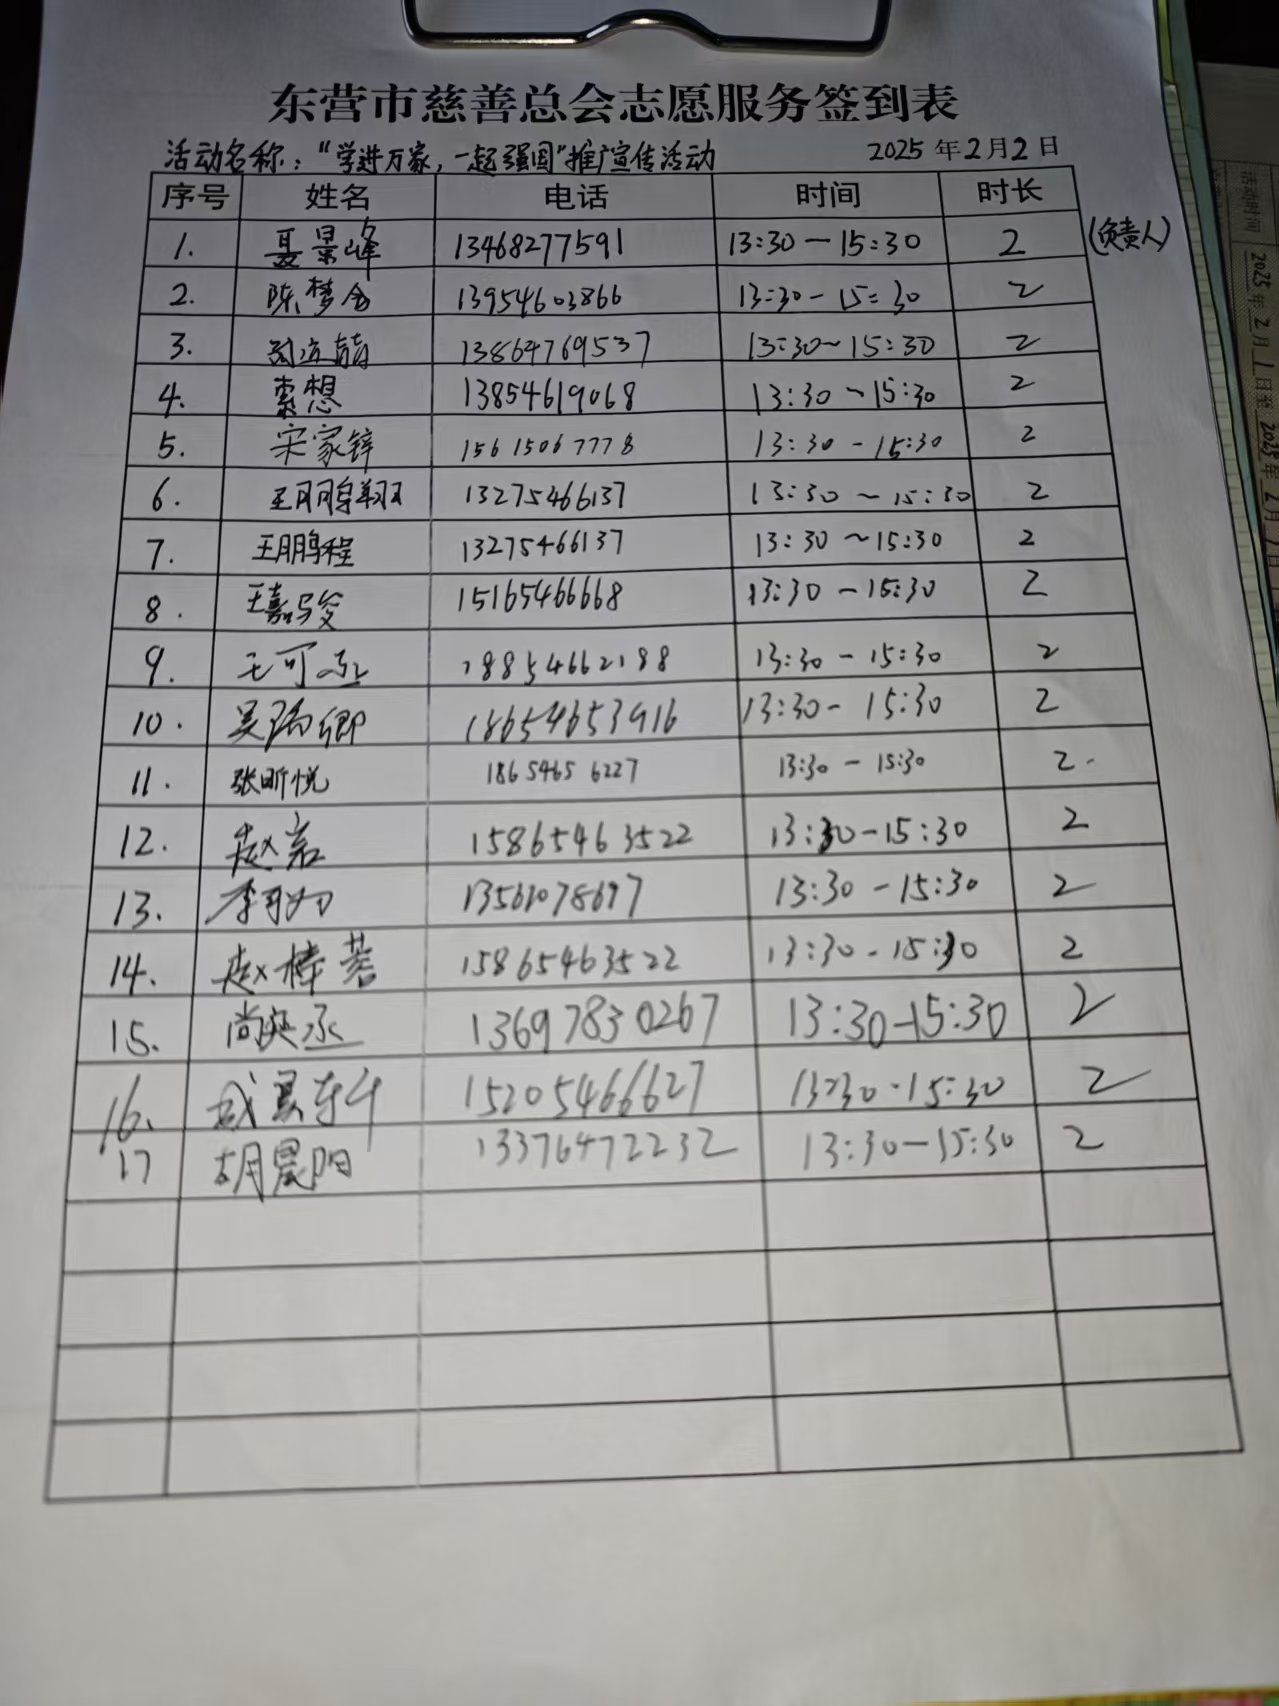 东营市慈善总会志愿服务签到表
活动名称："学进万家，一起强国"推广宣传活动 2025年2月2日
序号 姓名 电话 时间 时长
1. 聂景峰 13468277591 13:30—15:30 2 (负责人)
2. 陈梦含 13954603866 13:30-15:30 2
3. 13864769537 13:30~15:30 2
4. 索想 13854619068 13:30~15:30 2
5. 宋家锌 15615067778 13:30-15:30 2
6. 王鹏翔 13275466137 13:30~15:30 2
7. 王鹏程 13275466137 13:30~15:30 2
8. 王嘉骏 15165466668 13:30-15:30 2
9. 王可 18854662188 13:30-15:30 2
10. 吴瑞卿 18654653916 13:30-15:30 2
11. 张昕悦 18654656227 13:30-15:30 2.
12. 赵 15865463522 13:30-15:30 2
13. 李 13561078697 13:30-15:30 2
14. 赵梓 15865463522 13:30-15:30 2
15. 尚奕丞 13697830267 13:30-15:30 2
16. 15205466627 13:30-15:30 2
17 胡晨阳 13376472232 13:30-15:30 2
活动时间
2025年2月1日至2025年2月